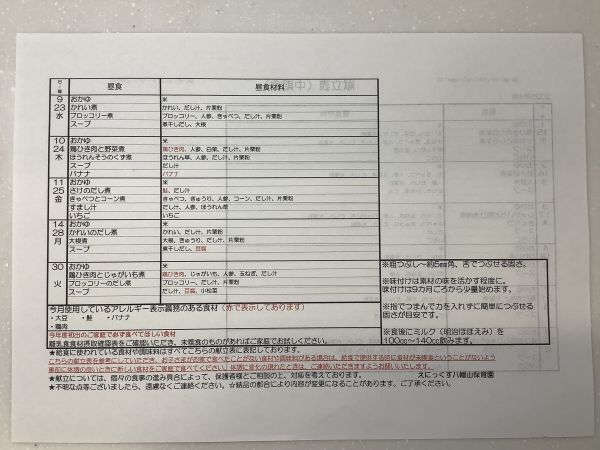 昼食 昼食材料
9 おかゆ 米
23 かれい煮 かれい、だし汁、片栗粉
水 ブロッコリー煮 ブロッコリー、人参、きゃべつ、だし汁、片栗粉
スープ 煮干しだし、大根
10 おかゆ 米
24 鶏ひき肉と野菜煮 鶏ひき肉、人参、白菜、だし汁、片栗粉
木 ほうれんそうのくず煮 ほうれん草、人参、だし汁、片栗粉
スープ だし汁
バナナ バナナ
11 おかゆ 米
25 さけのだし煮 鮭、だし汁
金 きゃべつとコーン煮 きゃべつ、きゅうり、人参、コーン、だし汁、片栗粉
すまし汁 だし汁、人参、ほうれん草
いちご いちご
14 おかゆ 米
28 かれいのだし煮 かれい、だし汁、片栗粉
月 大根煮 大根、きゅうり、だし汁、片栗粉
スープ 煮干しだし、豆腐
30 おかゆ 米
火 鶏ひき肉とじゃがいも煮 鶏ひき肉、じゃがいも、人参、玉ねぎ、だし汁
ブロッコリーのだし煮 ブロッコリー、だし汁、片栗粉
スープ だし汁、豆腐、小松菜
※粗つぶし~約5㎜角、舌でつぶせる固さ。
※味付けは素材の味を活かす程度に。
味付けは9カ月ごろから少量始めます。
※指でつまんで力を入れずに簡単につぶせる
固さが目安です。
※食後にミルク（明治ほほえみ）を
100cc～140cc飲みます。
今月使用しているアレルギー表示義務のある食材（赤で表示してあります）
・大豆 ・鮭 ・バナナ
・鶏肉
今年度初出のご家庭で必ず食べてほしい食材
離乳食食材摂取確認表をご確認いただき、未摂食のものがあればご家庭でお試しください。
★給食に使われている食材や調味料はすべてこちらの献立表に表記しております。
こちらの献立表を参考にしていただき、お子さまが家庭で食べたことがない食材や調味料がある場合は、給食で提供する時に食材が未摂食ということがないよう
事前に体調の良いときに新しい食材をご家庭で食べてください。体調に変化の現れたときは、ご連絡いただきますようお願いいたします。
★献立については、個々の食事の進み具合によって、保護者様とご相談の上、対応を考えております。 えにっくす八幡山保育園
★不明な点等ございましたら、遠慮なくご連絡ください。☆納品の都合により内容が変更になることがあります。ご了承ください。